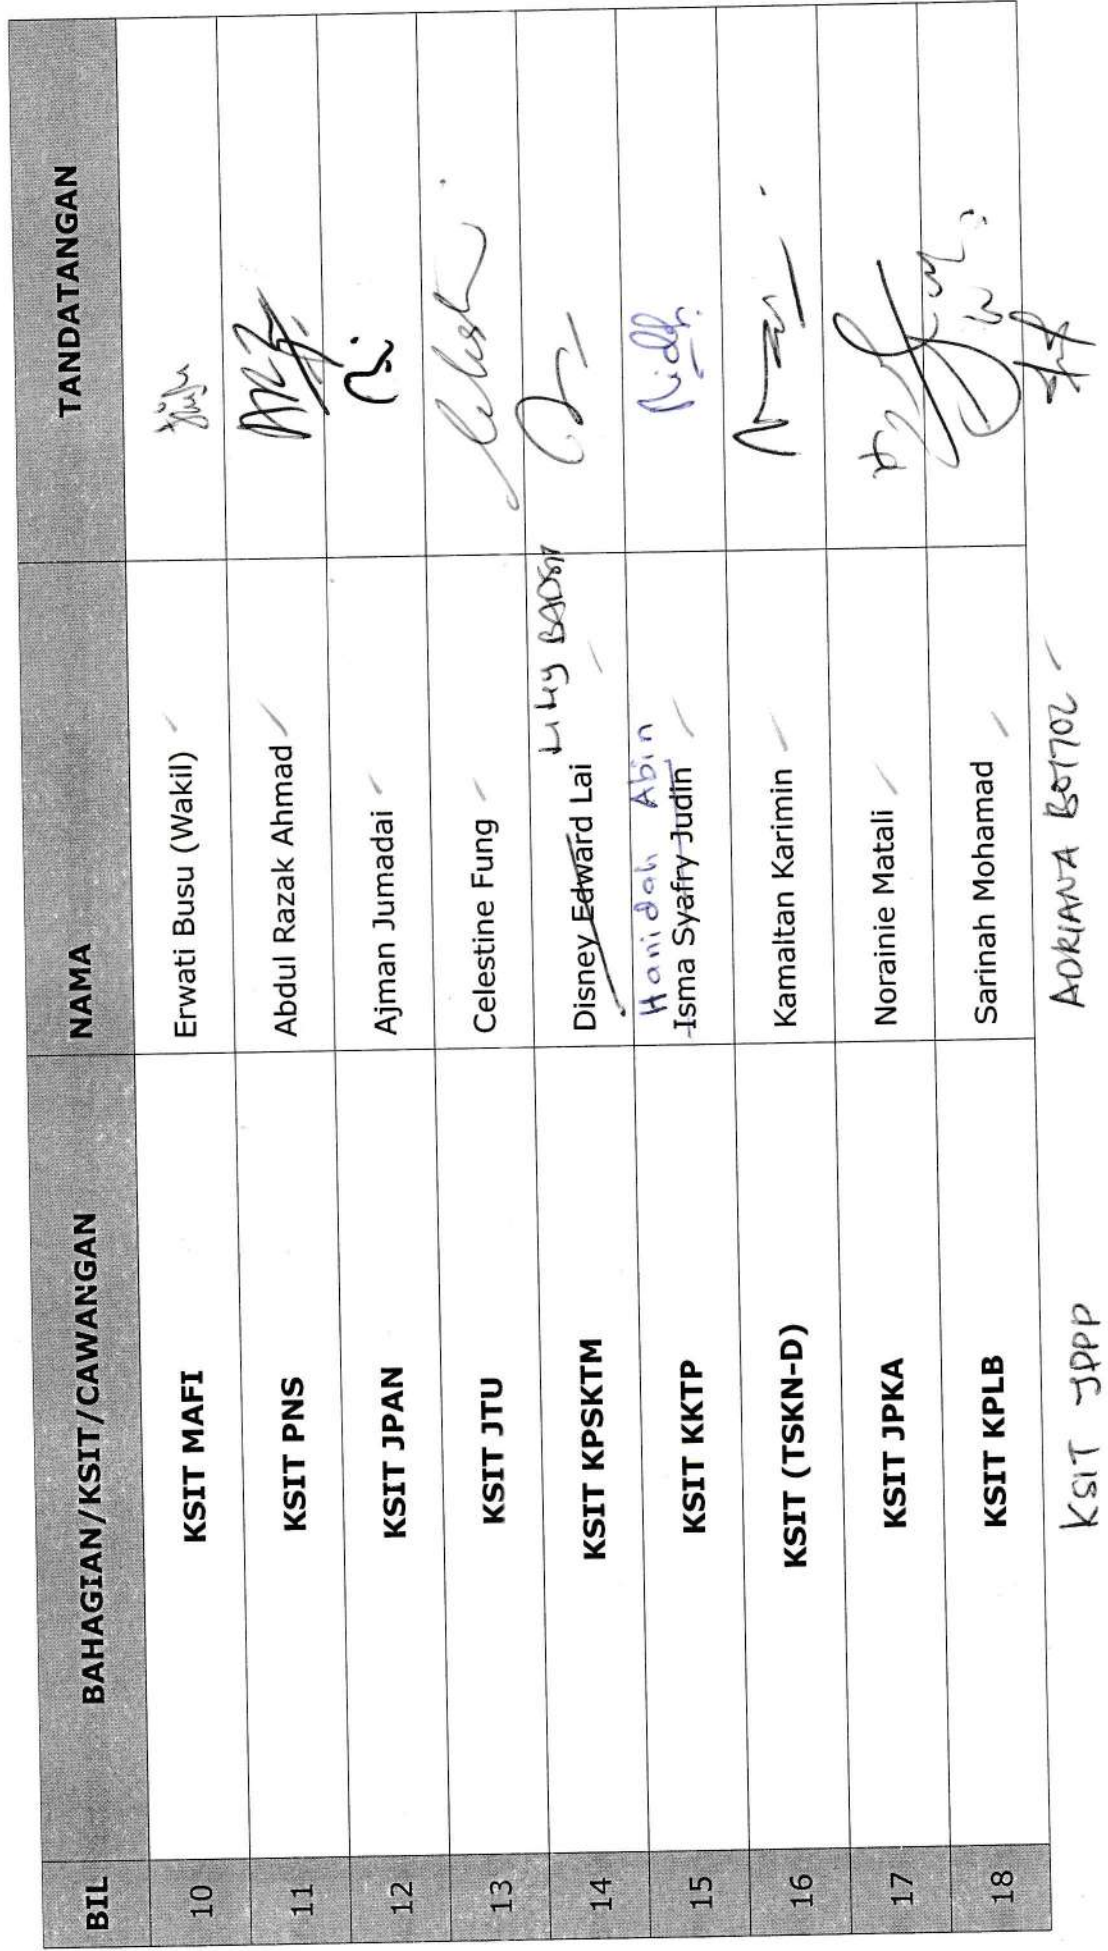 BIL BAHAGIAN/KSIT/CAWANGAN NAMA TANDATANGAN
10 KSIT MAFI Erwati Busu (Wakil)
11 KSIT PNS Abdul Razak Ahmad
12 KSIT JPAN Ajman Jumadai
13 KSIT JTU Celestine Fung
14 KSIT KPSKTM Disney Edward Lai
15 KSIT KKTP Hanidah Abin
Isma Syafry Judin
16 KSIT (TSKN-D) Kamaltan Karimin
17 KSIT JPKA Norainie Matali
18 KSIT KPLB Sarinah Mohamad
KSIT JPPP ADRIANA